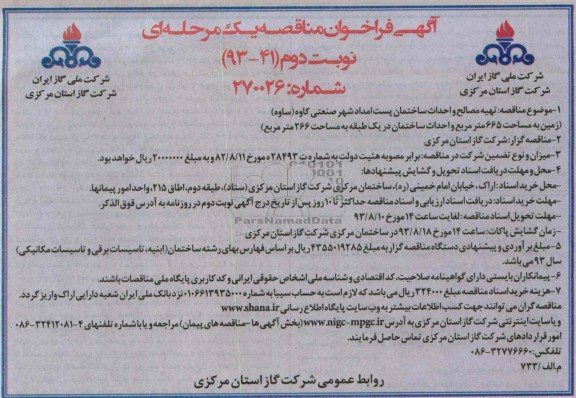 آگهی فراخوان مناقصه یک مرحله‌ای
نوبت دوم (۴۱-۹۳)
شماره: ۲۷۰۰۲۶
شرکت ملی گاز ایران
شرکت گاز استان مرکزی
شرکت ملی گاز ایران
شرکت گاز استان مرکزی
۱-موضوع مناقصه: تهیه مصالح و احداث ساختمان پست امداد شهر صنعتی کاوه (ساوه)
(زمین به مساحت ۶۶۵ متر مربع و احداث ساختمان در یک طبقه به مساحت ۲۶۶ متر مربع)
۲-مناقصه گزار: شرکت گاز استان مرکزی
۳-میزان و نوع تضمین شرکت در مناقصه: برابر مصوبه هیئت دولت به شماره ت ۲۸۴۹۳ ه مورخ ۸۲/۸/۱۱ و به مبلغ ۲۰۰۰۰۰۰۰ ریال خواهد بود.
۴-محل و مهلت دریافت اسناد تحویل و گشایش پیشنهادها:
-محل خرید اسناد: اراک، خیابان امام خمینی (ره)، ساختمان مرکزی شرکت گاز استان مرکزی (ستاد)، طبقه دوم، اطاق ۲۱۵، واحد امور پیمانها.
-مهلت خرید اسناد: دریافت اسناد ارزیابی و اسناد مناقصه حداکثر تا ۱۰ روز پس از تاریخ درج آگهی نوبت دوم در روزنامه به آدرس فوق الذکر.
-مهلت تحویل اسناد مناقصه: لغایت ساعت ۱۴ مورخ ۹۳/۸/۱۰
-زمان گشایش پاکات: ساعت ۱۴ مورخ ۹۳/۸/۱۸ در ساختمان مرکزی شرکت گاز استان مرکزی.
۵-مبلغ برآوردی و پیشنهادی دستگاه مناقصه گزار به مبلغ ۴۳۵۵۰۱۹۲۸۵ ریال بر اساس فهارس بهای رشته ساختمان (ابنیه، تاسیسات برقی و تاسیسات مکانیکی)
سال ۹۳ می باشد.
۶-پیمانکاران بایستی دارای گواهینامه صلاحیت، کد اقتصادی و شناسه ملی اشخاص حقوقی ایرانی و کد کاربری پایگاه ملی مناقصات باشند.
۷-هزینه خرید اسناد مناقصه مبلغ ۳۲۴۰۰۰ ریال می باشد که لازم است به حساب سیبا به شماره ۰۱۰۶۶۱۳۹۳۵۰۰۰ نزد بانک ملی ایران شعبه دارایی اراک واریز گردد.
مناقصه گران می توانند جهت کسب اطلاعات بیشتر به وب سایت پایگاه اطلاع رسانی www.shana.ir
و یا سایت اینترنتی شرکت گاز استان مرکزی به آدرس www.nigc-mpgc.ir (بخش آگهی ها -مناقصه های پیمان) مراجعه و یا با شماره تلفنهای ۴-۳۲۴۱۲۰۸۱-۰۸۶
امور قراردادهای شرکت گاز استان مرکزی تماس حاصل فرمایند.
تلفکس: ۳۲۷۷۶۶۶۰-۰۸۶
م.الف/۷۳۳
روابط عمومی شرکت گاز استان مرکزی
ParsNamadData